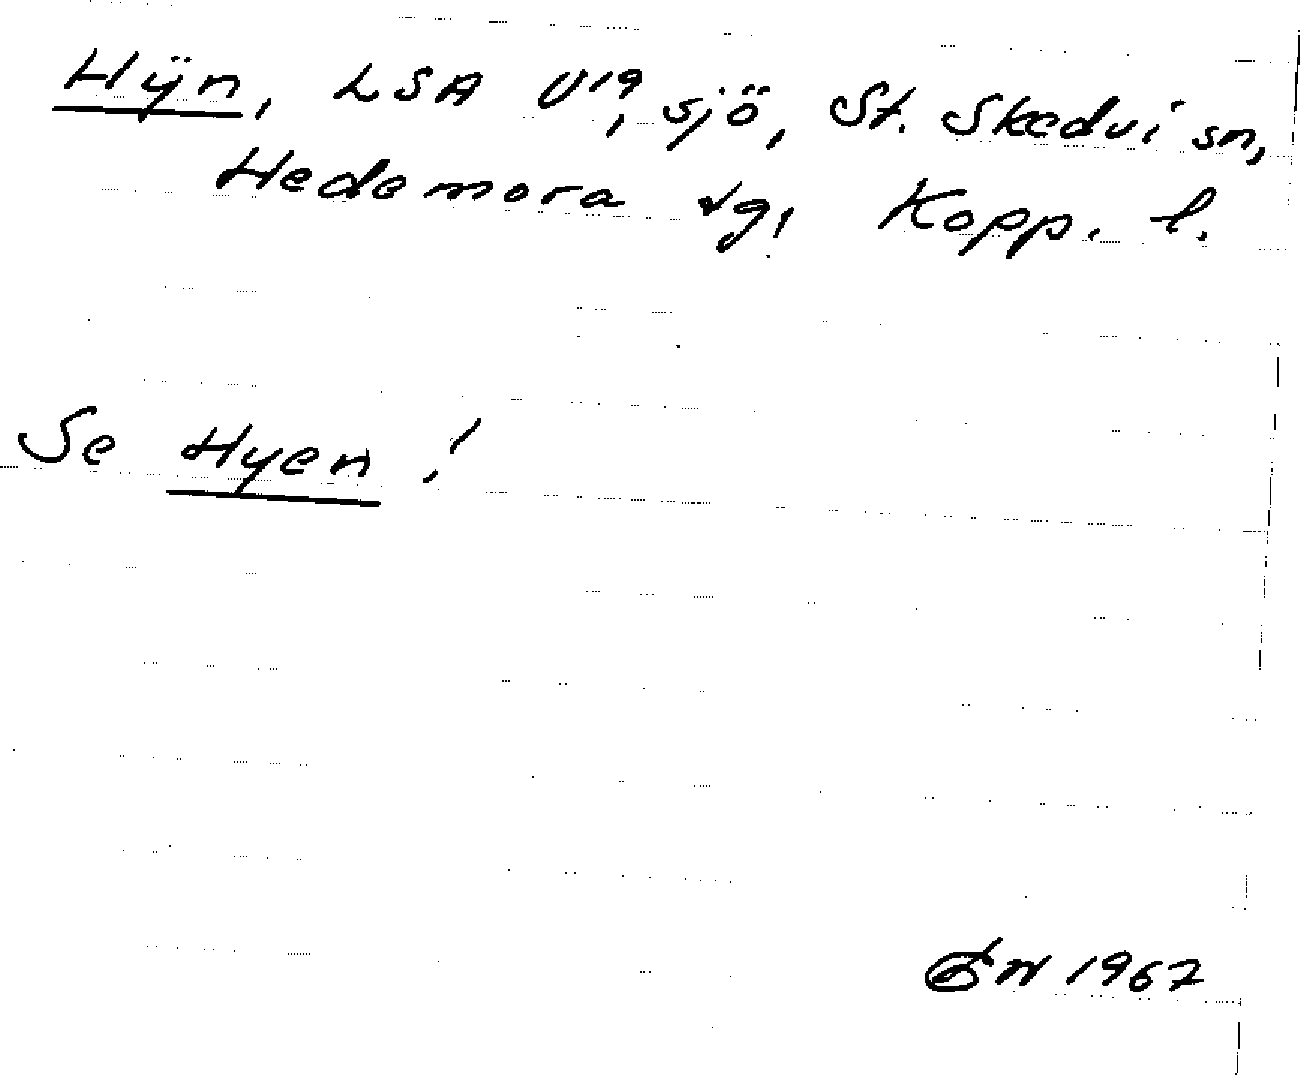 Hÿn, LSA U19, sjö, St. Skedvi sn,
Hedemora tg, Kopp. l.
Se Hyen!
1967